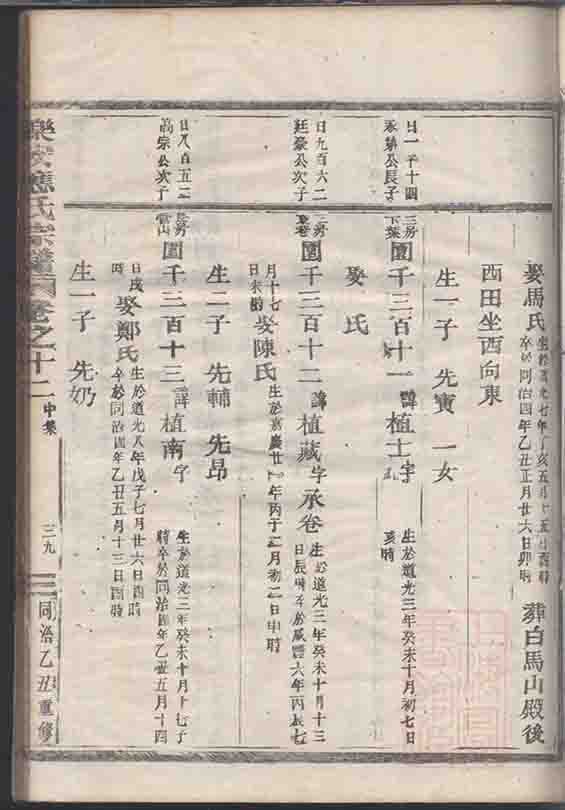 娶馬氏 生於道光七年丁亥五月十五日酉時 卒於同治四年乙丑正月廿六日卯時 葬白馬山殿後
西田坐西向東
生一子 先寶 一女
日一千十四 永 公長子
三房 下葉 圍千三百十一 諱植士 字 生於道光三年癸未十月初七日
亥時
娶 氏
日九百六二 廷豪公次子
三房 圍千三百十二 諱植藏 字承卷 生於道光三年癸未十月十三
日辰時卒於咸豐六年丙辰七
月十七日未時 娶陳氏 生於嘉慶廿 年丙子二月初二日申時
生二子 先輔 先昂
日八百五二 高宗公次子
長房 雷山 圍千三百十三 諱植南 字 生於道光三年癸未十月十七子
時卒於同治四年乙丑五月十四
日戌時 娶鄭氏 生於道光八年戊子七月廿六日酉時 卒於同治四年乙丑五月十三日酉時
生一子 先奶
樂安應氏宗譜 卷之十二 中集 三九 同治乙丑重修